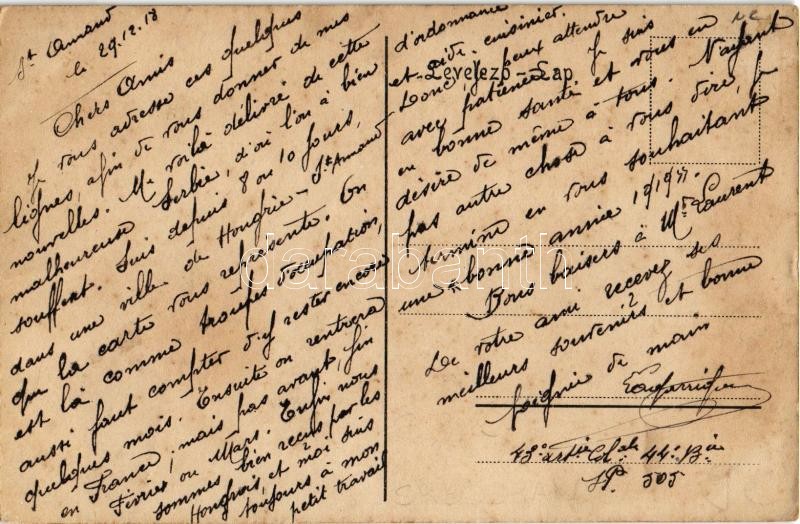 St Armand
le 29.12.18
Chers Amis
Je vous adresse ces quelques
lignes, afin de vous donner de mes
nouvelles. Me voilà délivré de cette
malheureuse Serbie, d'où l'on a bien
souffert. Suis depuis 8 ou 10 jours,
dans une ville de Hongrie - St Armand
que la carte vous représente. On
est là comme troupes d'occupation,
aussi faut compter d'y rester encore
quelques mois. Ensuite on rentrera
en France, mais pas avant, fin
Février ou Mars. Enfin nous
sommes bien reçus par les
Hongrois, et moi suis
toujours à mon
petit travail
d'ordonnance
et aide-cuisinier.
Donc je peux attendre
avec patience. Je suis
en bonne santé et vous en
désire de même à tous. N'ayant
pas autre chose à vous dire, je
termine en vous souhaitant
une bonne année 1919.
Bons baisers à Mr Laurent
De votre ami recevez ses
meilleurs souvenirs et bonne
poignée de main
44e Bie
SP. 505
Levelező-Lap
darabanth